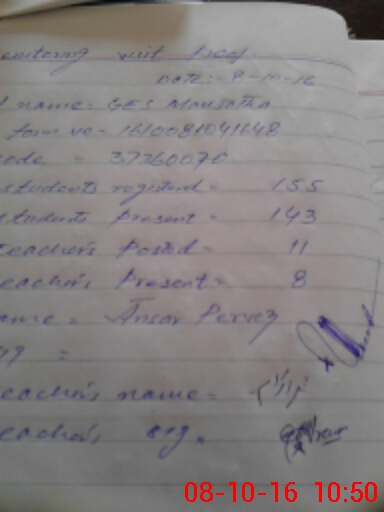 onitoring visit Proof
DATE:- 8-10-16
name = GES
form no = 1610081041648
ode = 37360070
students registerd = 155
students Present = 143
teacher's Posted = 11
eacher's Present = 8
ame = Ansar Pervez
=
eacher's name =
eacher's sig.
08-10-16 10:50